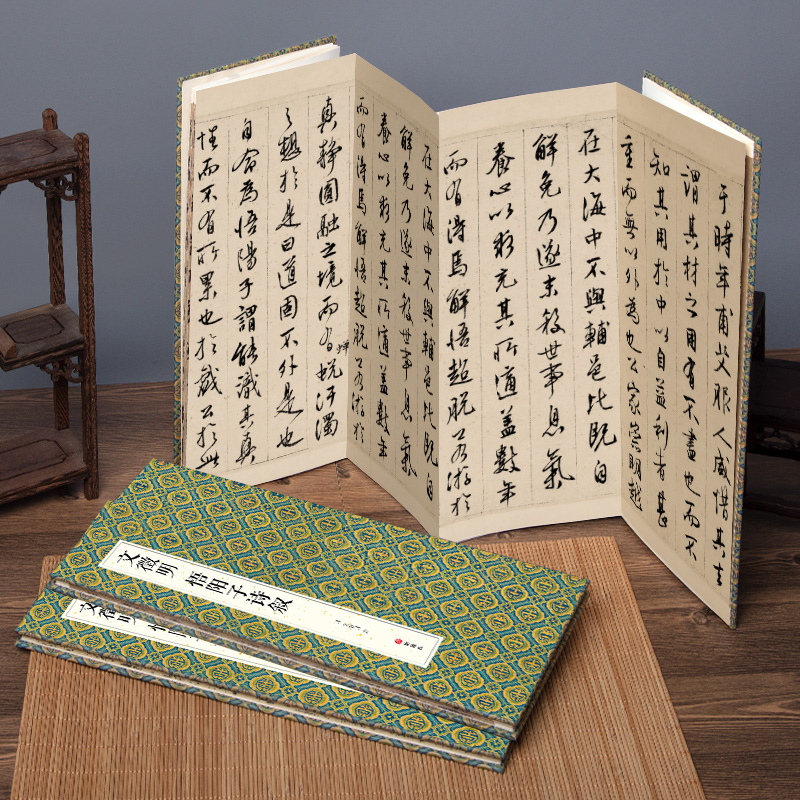 于時年甫艾服人咸惜其去
謂其材之用有不盡也而不
知其用於中以自益利者甚
重而無以外為也公家崇明越
在大海中不與輔邑比既自
解免乃遂末殺世事息氣
養心以務充其所適蓋數年
而有得焉解悟超脫若游於
在大海中不與輔邑比既自
解免乃遂末殺世事息氣
養心以務充其所適蓋數年
而有得焉解悟超脫若游於
真靜圓融之境而有蟬蛻汙濁
之想於是曰道固不外是也
自命為悟陽子謂能識其真
性而不有所累也於戲公於此
文徵明 悟阳子诗叙
文徵明